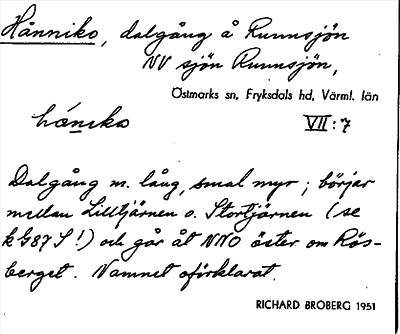 Hånniko, dalgång å Runnsjön
NV sjön Runnsjön,
Östmarks sn, Fryksdals hd, Värml. län
hániko VII:7
Dalgång m. lång, smal myr ; börjar
mellan Lilltjärnen o. Stortjärnen (se
k G87S!) och går åt NNO öster om Rös-
berget. Namnet oförklarat.
RICHARD BROBERG 1951